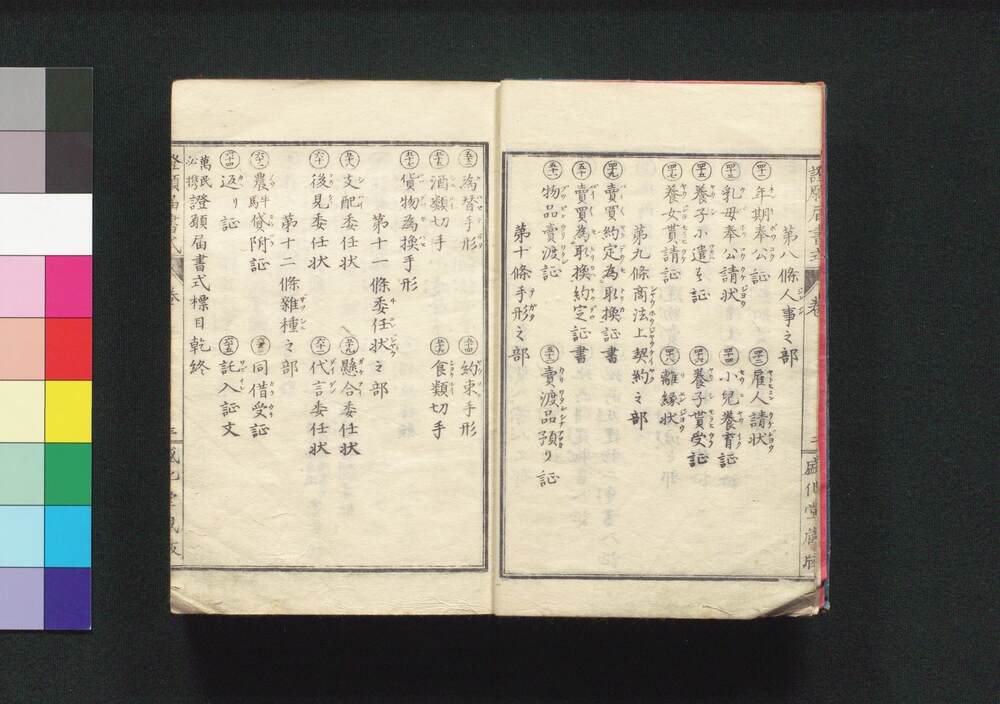 第八條人事之部
四十一 年期奉公証 四十二 雇人請状
四十三 乳母奉公請状 四十四 小兒養育証
四十五 養子小遣ヒ証 四十六 養子貰受証
四十七 養女貰請証 四十八 離縁状
第九條商法上契約之部
四十九 賣買約定為取換証書
五十 賣買為取換約定証書
五十一 物品賣渡証 五十二 賣渡品預り証
第十條手形之部
五十三 為替手形 五十四 約束手形
五十五 酒類切手 五十六 食類切手
五十七 貨物為換手形
第十一條委任状之部
五十八 支配委任状 五十九 懸合委任状
六十 後見委任状 六十一 代言委任状
第十二條雑種之部
六十二 農牛馬貸附証 六十三 同借受証
六十四 返り証 六十五 託入証文
萬民必携證願届書式標目乾終